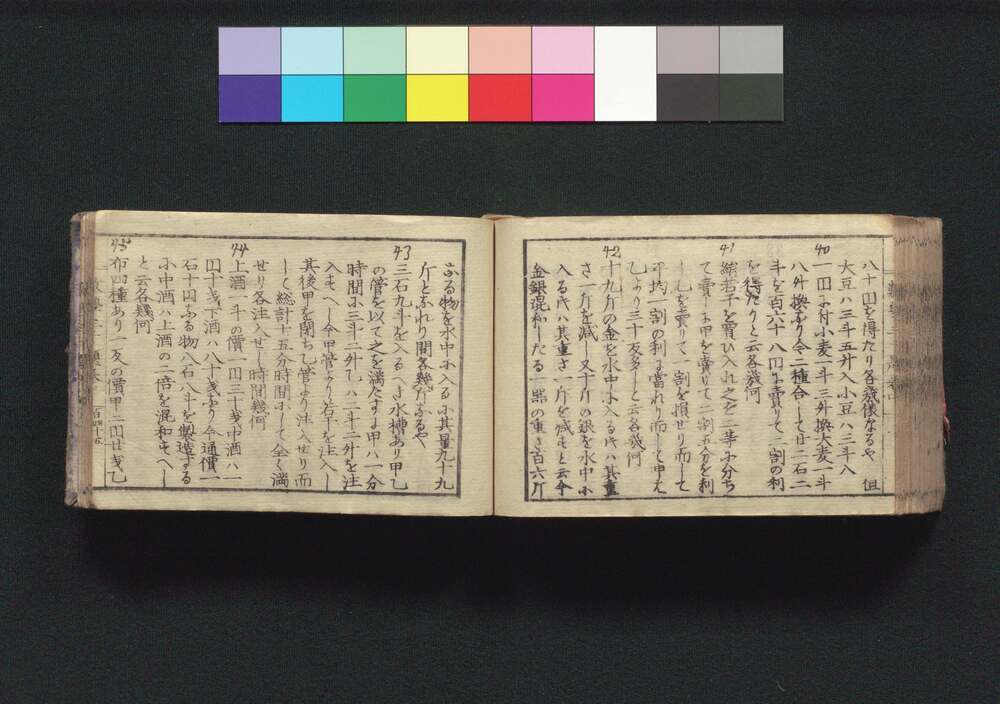 八十圓を得たり各幾俵なるや但
大豆ハ三斗五升入小豆ハ三斗八
40
一圓に付小麦一斗三升換大麦一斗
八升換なり今二種合して廿二石二
斗を百六十八圓に賣りて二割の利
を得たりと云各幾何
41
若干を買ひ入れ之を二等に分ち
て賣りしに甲を賣りて二割五分を利
し乙を賣りて一割を損せり而して
平均一割の利に當れり而して甲ハ
乙より三十反多しと云各幾何
42
十九斤の金を水中に入る時ハ其重
さ一斤を減し又十斤の銀を水中に
入る時ハ其重さ一斤を減すと云今
金銀混和したる一器の重さ百六斤
なる物を水中に入るに其量九十九
斤となれり問各幾斤なるや
43
三石九斗を入るへき水槽あり甲乙
の管を以て之を満たすに甲ハ一分
時間に三斗二升乙ハ二斗二升を注
入すへし今甲管より若干を注入し
其後甲を閉ち乙管より注入せり而
して総計十五分時間にして全く満
せり各注入せし時間幾何
44
上酒一斗の價一圓三十戔中酒ハ一
圓十戔下酒ハ八十戔なり今通價一
石十圓なる物八石八斗を製造する
に中酒ハ上酒の二倍を混和すへし
と云各幾何
45
布四種あり一反の價甲一圓廿戔乙